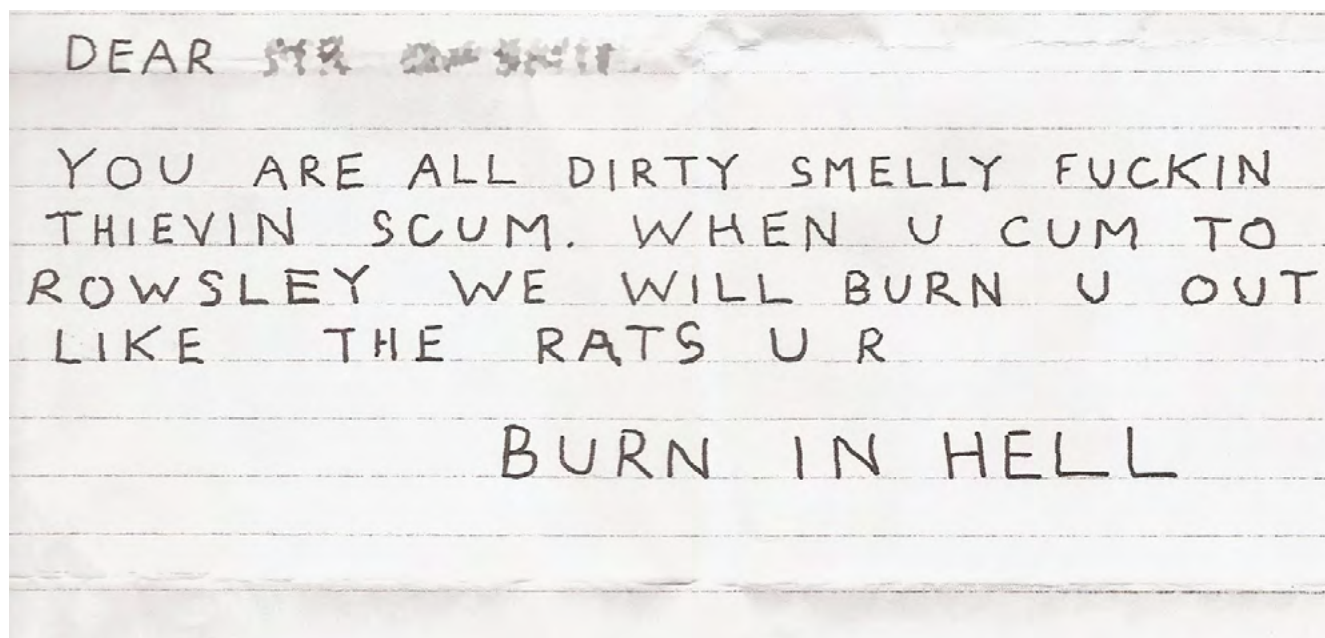 DEAR
YOU ARE ALL DIRTY SMELLY FUCKIN
THIEVIN SCUM. WHEN U CUM TO
ROWSLEY WE WILL BURN U OUT
LIKE THE RATS U R
BURN IN HELL